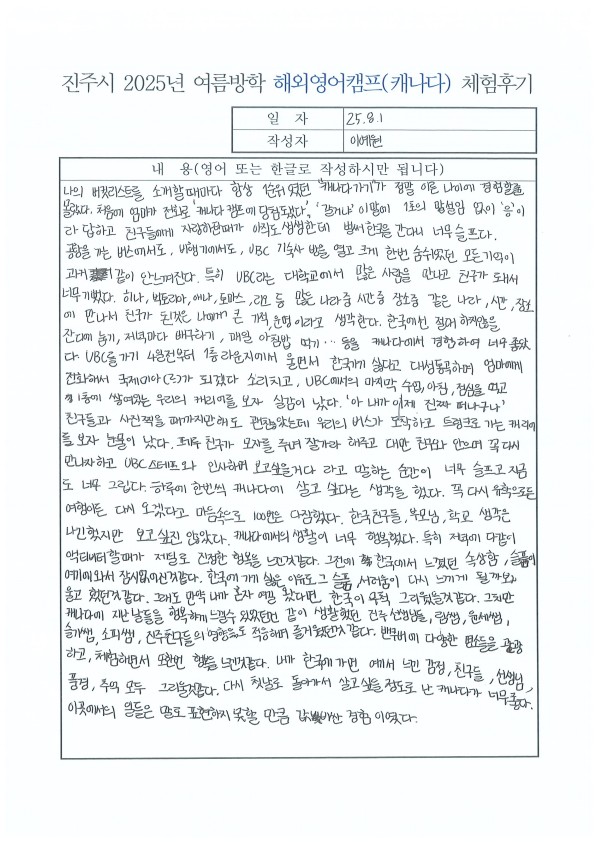 진주시 2025년 여름방학 해외영어캠프(캐나다) 체험후기
일 자 25.8.1
작성자 이예원
내 용(영어 또는 한글로 작성하시만 됩니다)
나의 버킷리스트를 소개할때마다 항상 1순위였던 "캐나다가기"가 정말 이른 나이에 경험할줄
몰랐다. 처음에 엄마가 전화로 '캐나다 캠프에 당첨됐다', '갈거냐' 이말에 1초의 망설임 없이 '응'이
라 답하고 친구들에게 자랑하던때가 아직도 생생한데 벌써 한국을 간다니 너무 슬프다.
공항을 가는 버스에서도, 비행기에서도, UBC 기숙사 방을 열고 크게 한번 숨쉬었던 모든기억이
과거 같이 안느껴진다. 특히 UBC라는 대학교에서 많은 사람을 만나고 친구가 돼서
너무기뻤다. 히나, 빅토리아, 에나, 토마스, 리오 등 많은 나라중 시간중 장소중 같은 나라, 시간, 장소
에 만나서 친구가 된것은 나에게 큰 기적, 운명이라고 생각한다. 한국에선 절대 하지않을
잔디에 눕기, 저녁마다 배구하기, 매일 아침밥 먹기... 등을 캐나다에서 경험하여 너무 좋았
다. UBC를가기 4일전부터 1층 라운지에서 울면서 한국가기 싫다고 대성통곡하며 엄마에게
전화해서 국제미아(?)가 되겠다 소리치고, UBC에서의 마지막 수업, 아침, 점심을 먹고
1층에 쌓여있는 우리의 캐리어를 보자 실감이 났다. '아 내가 이제 진짜 떠나구나'
친구들과 사진찍을 때까지만해도 괜찮았는데 우리의 버스가 도착하고 트렁크로 가는 캐리어
를 보자 눈물이 났다. 페루 친구가 모자를 주며 잘가라 해주고 대만 친구와 안으며 꼭 다시
만나자하고 UBC 스태프와 인사하며 보고싶을거다 라고 말하는 순간이 너무 슬프고 지금
도 너무 그립다. 하루에 한번씩 캐나다에 살고 싶다는 생각을 했다. 꼭 다시 유학으로든
여행이든 다시 오겠다고 마음속으로 100번은 다짐했다. 한국친구들, 부모님, 학교 생각은
나긴했지만 보고 싶진 않았다. 캐나다에서의 생활이 너무 행복했다. 특히 저녁에 다같이
액티비티할때가 제일로 진정한 행복을 느낀것같다. 그전에 한국에서 느꼈던 속상함, 슬픔이
여기에와서 잠시없어진것같다. 한국에 가기 싫은 이유도 그 슬픔, 서러움이 다시 느끼게 될까보
울고 했던것같다. 그래도 만약 내가 혼자 여길 왔다면, 한국이 무척 그리웠을것같다. 그치만
캐나다에 지낸 날들을 행복하게 느낄수 있었던건 같이 생활했던 진주 선생님들, 림쌤, 윤세쌤,
슬기쌤, 소피쌤, 진주친구들의 영향으로 적응하며 즐거웠던것같다. 밴쿠버에 다양한 명소들을 관광
하고, 체험하면서 또한번 행복을 느낀것같다. 내가 한국에 가면 여기서 느낀 감정, 친구들, 선생님,
풍경, 추억 모두 그리울것같다. 다시 첫날로 돌아가서 살고 싶을 정도로 난 캐나다가 너무좋다.
이곳에서의 일들은 말로 표현하지 못할 만큼 값비싼 경험 이였다.